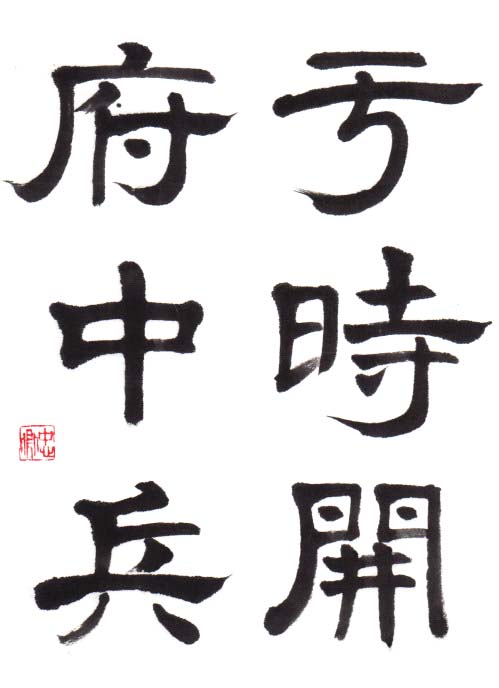 亐時開
府中兵